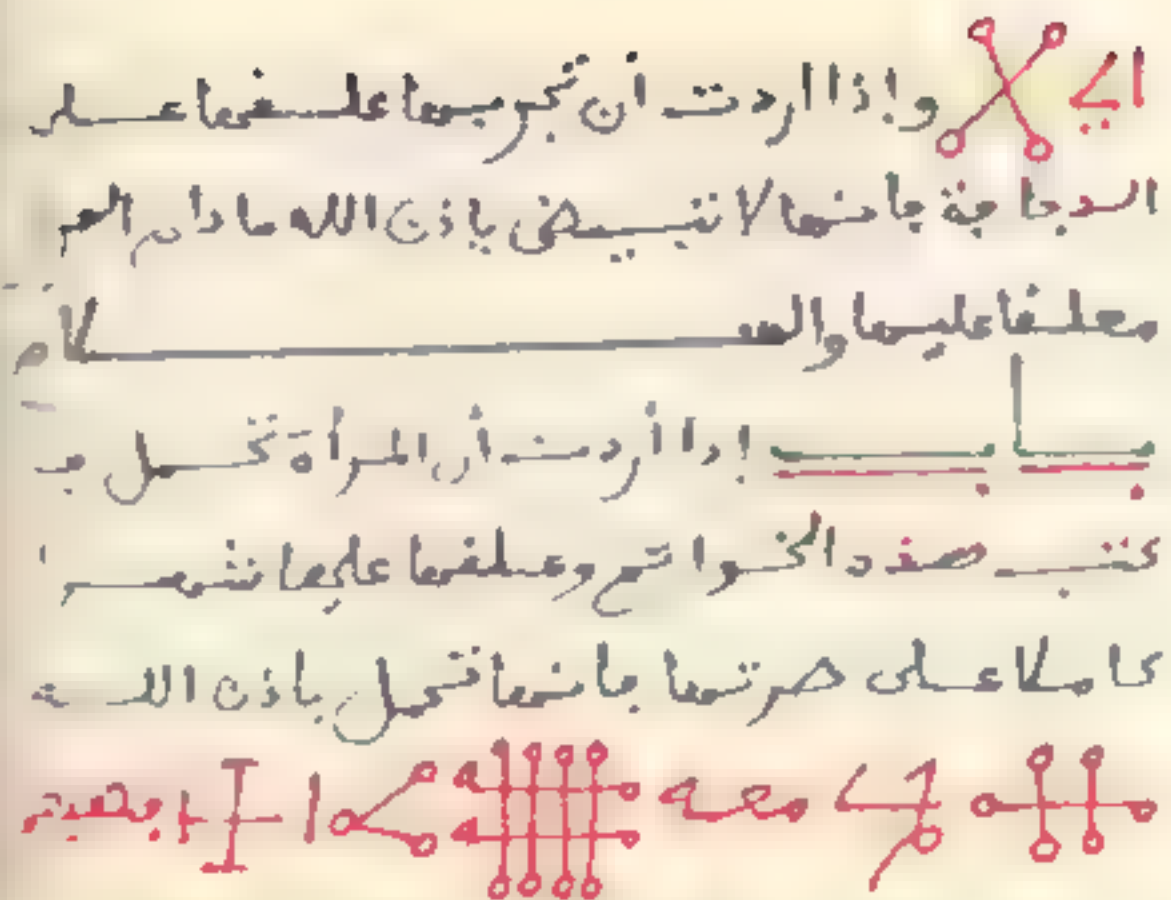 وإذا اردت أن تجربها علقها على
الدجاجة فإنها لا تبيض بإذن الله ما دام
معلقا عليها والسلام
باب إذا أردت أن المرأة تحمل
تكتب هذه الخواتم وعلقها عليها شهرا
كاملا على صرتها فإنها تحمل بإذن الله